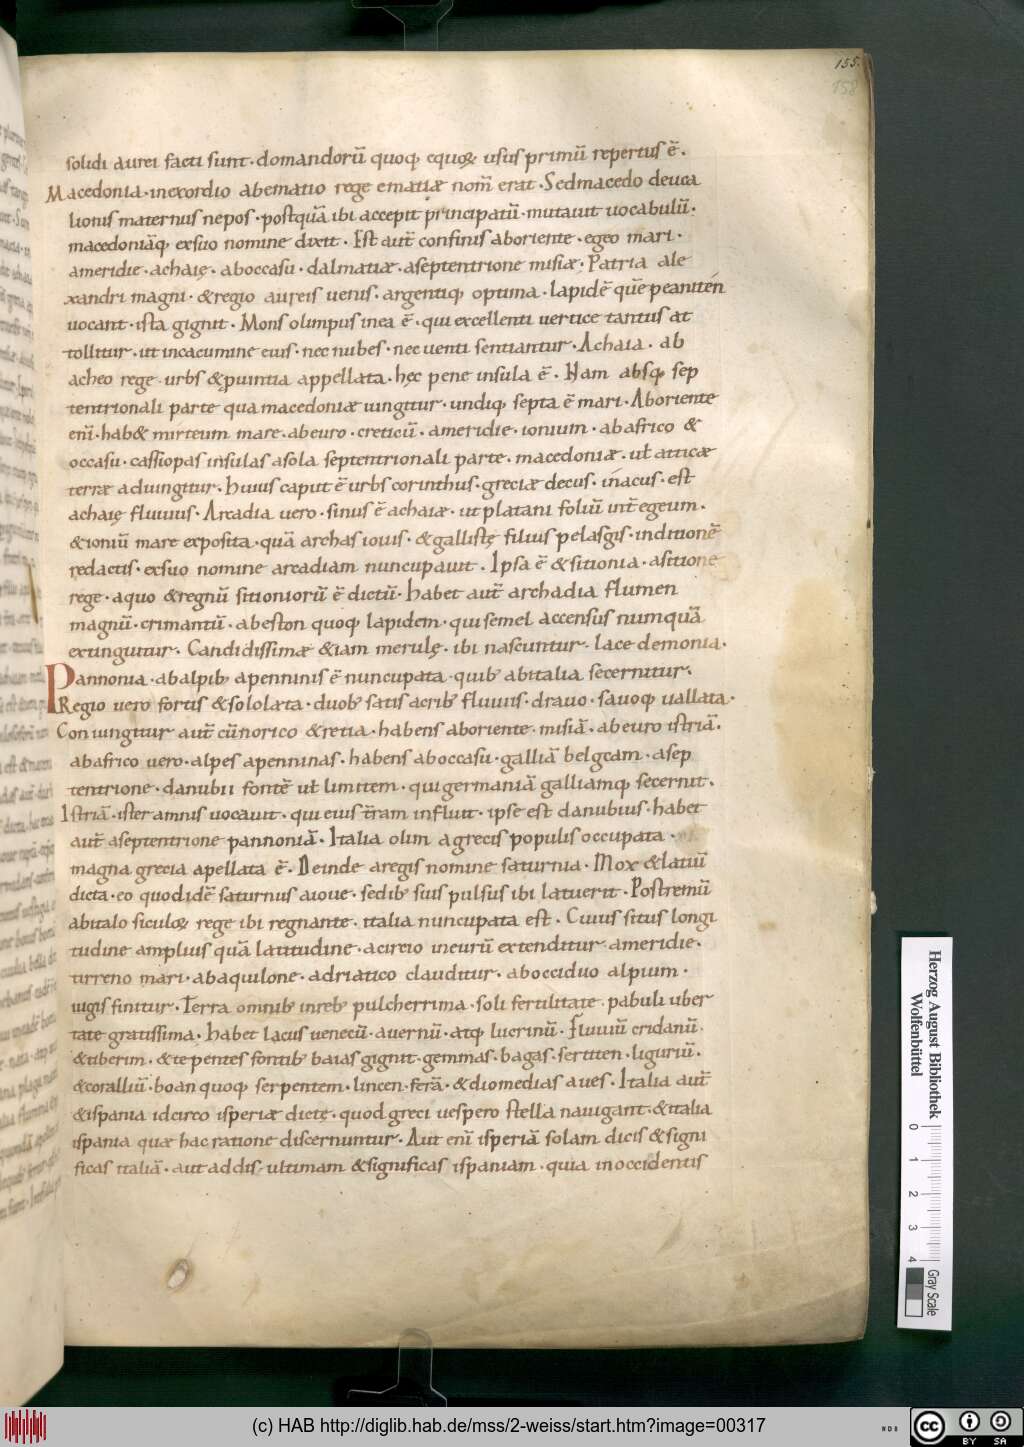 155.
158
solidi aurei facti sunt · domandorū quoq; equoꝝ usus primū repertus ē .
Macedonia · in exordio ab ematio rege ematiæ nom̄ erat · Sed macedo deuca
lionis maternus nepos · postquā ibi accepit principatū · mutauit uocabulū .
macedoniāq; ex suo nomine dixit . Est aut̄ confinis ab oriente · egeo mari .
a meridie · achaię · ab occasu · dalmatiæ · a septentrione misiæ : Patria ale
xandri magni · & regio aureis uenis · argentiq; optima · lapidē quē peanitén
uocant · ista gignit . Mons olimpus in ea ē · qui excellenti uertice tantus at
tollitur · ut in cacumine eius · nec nubes · nec uenti sentiantur . Achaia . ab
acheo rege · urbs & puintia appellata · hęc pene insula ē . Nam absq; sep
tentrionali parte qua macedoniæ iungitur · undiq; septa ē mari . Ab oriente
eni · hab& mirteum mare · ab euro · creticū . a meridie · ionium · ab africo &
occasu · cassiopas insulas a sola septentrionali parte . macedoniæ . ul atticæ
terræ adiungitur . huius caput ē urbs corinthus · greciæ decus . inacus . est
achaię fluuius . Arcadia uero · sinus ē achaiæ · ut platani foliū int̄ egeum .
& ioniū mare exposita · quā archas iouis · & gallistę filius pelasgis · in ditionē
redactis · ex suo nomine arcadiam nuncupauit . Ipsa ē & sitionia · a sitione
rege · a quo & regnū sitioniorū ē dictū . habet aut̄ archadia flumen
magnū · crimantū · abeston quoq; lapidem · qui semel accensus numquā
extinguitur . Candidissimæ & iam merulę · ibi nascuntur . lacedemonia .
Pannonia · ab alpib; apenninis ē nuncupata · quib; ab italia secernitur .
Regio uero fortis & solo læta · duob; satis acrib; fluuiis · drauo · sauoq; uallata .
Con iungitur aut̄ cū norico & retia · habens ab oriente · misiā . ab euro istriā .
ab africo uero · alpes apenninas · habens ab occasu · galliā belgcam . a sep
tentrione · danubii fontē ul limitem · qui germaniā galliamq; secernit .
Istriā · ister amnis uocauit · qui eius t̄ram influit · ipse est danubius · habet
aut̄ a septentrione pannoniā . Italia olim a grecis populis occupata .
magna grecia apellata ē . Deinde a regis nomine saturnia . Mox & latiū
dicta · eo quod idē saturnus a ioue · sedib; suis pulsus ibi latuerit . Postremū
ab italo siculoꝝ rege ibi regnante · italia nuncupata est . Cuius situs longi
tudine amplius quā latitudine · a circio in eurū extenditur · a meridie .
tirreno mari · ab aquilone · adriatico clauditur · ab occiduo alpium .
iugis finitur . Terra omnib; in reb; pulcherrima . soli fertilitate . pabuli uber
tate gratissima . habet lacus uenecū · auernū · atq; lucrinū . Fluuiū eridanū .
& tiberim · & tepentes fontib; baias gignit · gemmas · bagas · sertiten · liguriū .
& coralliū · boan quoq; serpentem · lincen · ferā . & diomedias aues . Italia aut̄
& ispania idcirco isperiæ dictę · quod greci uespero stella nauigant · & italia
ispania quæ hac ratione discernuntur . Aut eni isperiā solam dicis & signi
ficas italiā . aut addis · ultimam & significas ispaniam · quia in occidentis
Herzog August Bibliothek
Wolfenbüttel
0 1 2 3 4
Gray Scale
(c) HAB http://diglib.hab.de/mss/2-weiss/start.htm?image=00317
cc BY SA